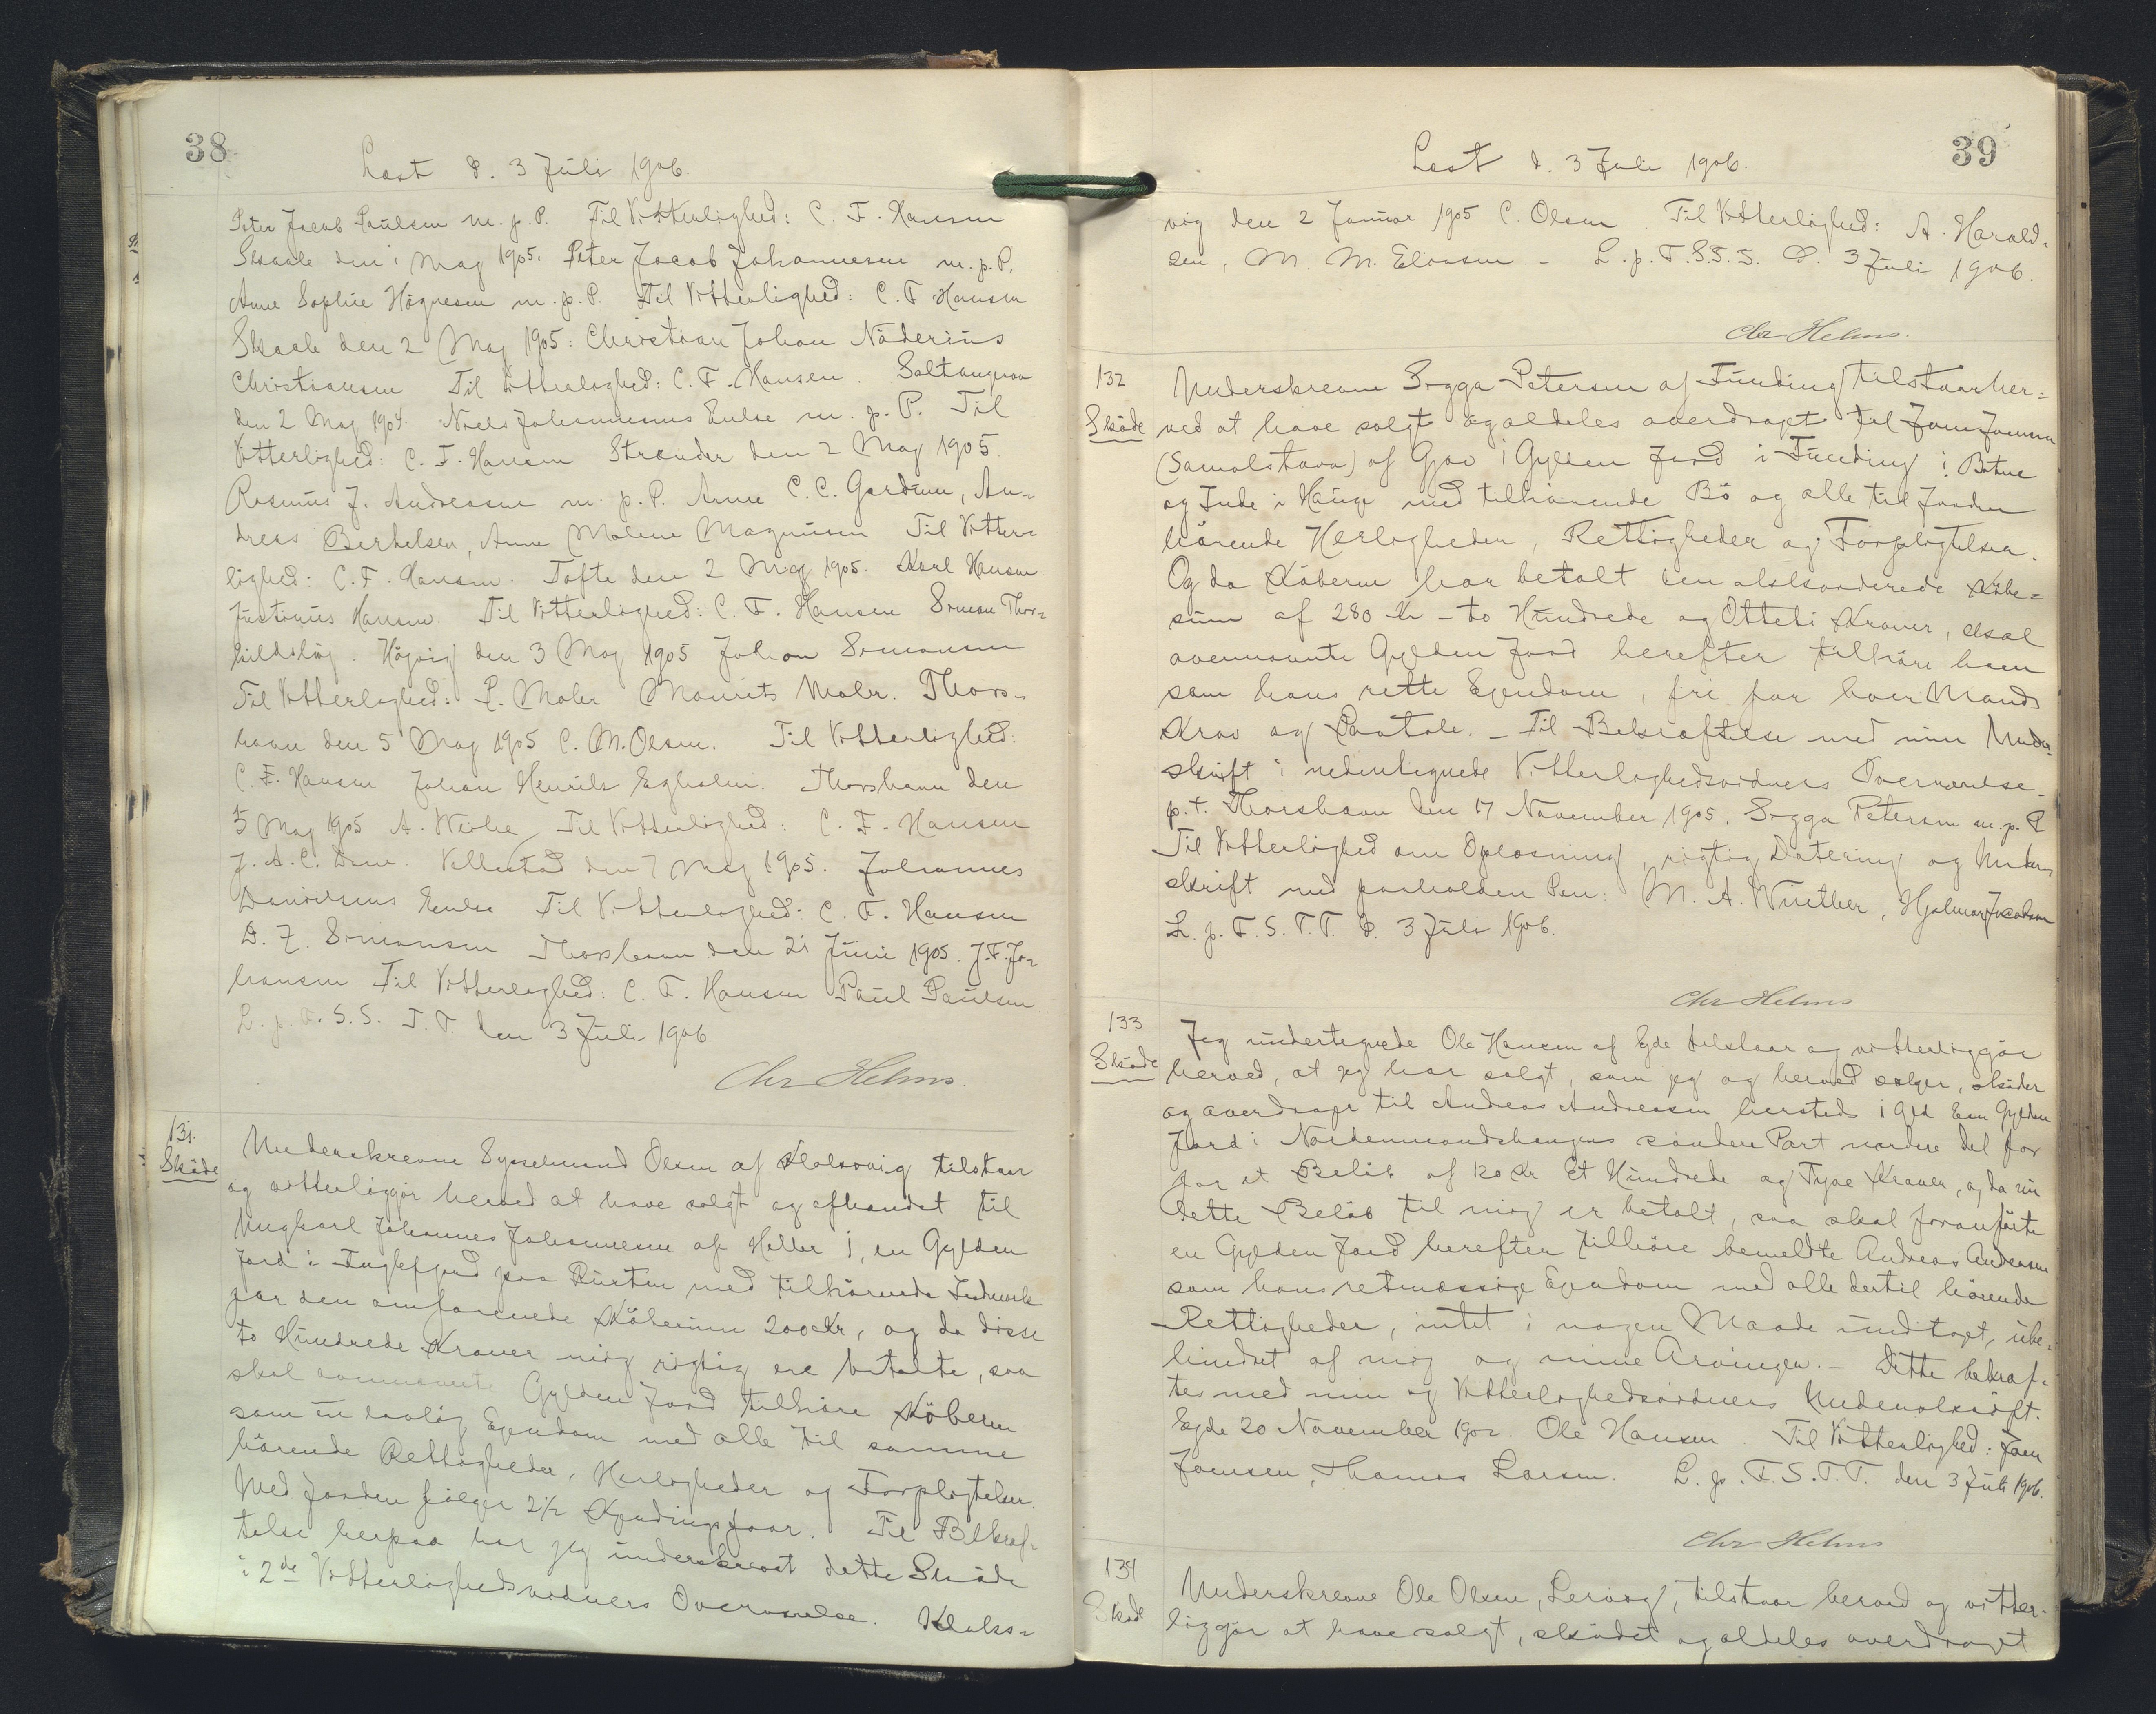 38
Læst d. 3 Juli 1906.
Peter Jacob Paulsen m. p. P. Til Vitterlighed: C. F. Hansen
Skaale den 1 Maj 1905. Peter Jacob Johannesen m. p. P.
Anne Sophie Högnesen m. p. P. Til Vitterlighed: C. F. Hansen
Skaale den 2 Maj 1905: Christian Johan
Christiansen Til Vitterlighed: C. F. Hansen. Saltangraa
den 2 Maj 1904. Niels Johannesens Enke m. p. P. Til
Vitterlighed: C. F. Hansen Strænder den 2 Maj 1905.
Rasmus J. Andreasen m. p. P. Anne C. C. Gardum, An-
dreas Berthelsen, Anne Malene Magnusen Til Vitter-
lighed: C. F. Hansen. Tofte den 2 Maj 1905. Karl Hansen
Justinus Hansen. Til Vitterlighed: C. F. Hansen Simon Thor-
kildshøj. Högvig den 3 Maj 1905 Johan Simonsen
Til Vitterlighed: P. Mohr Mourits Mohr. Thors-
havn den 5 Maj 1905 C. M. Olsen. Til Vitterlighed:
C. F. Hansen Johan Henrik Egholm. Thorshavn den
5 Maj 1905 A. Weihe Til Vitterlighed: C. F. Hansen
J. A. C. Dam. Vellestad den 7 Maj 1905. Johannes
Danielsens Enke Til Vitterlighed: C. F. Hansen
D. J. Simonsen Thorshavn den 21 Juni 1905. J. F. Jo-
hansen Til Vitterlighed: C. F. Hansen Paul Paulsen
L. p. F. S. S. T. T. den 3 Juli 1906
Chr Helms.
131.
Skøde
Underskrevne Sysselmand Olsen af Klaksvig tilstaar
og vitterliggjör herved at have solgt og afhændet til
Ungkarl Johannes Johannesen af Heller 1, en Gylden
Jord i Fuglefjord paa med tilhörende Indmark
for den omforenede Köbesum 200 Kr, og da disse
to Hundrede Kroner mig rigtig ere betalte, saa
skal ovennævnte Gylden Jord tilhöre Köberen
som en lovlig Ejendom med alle til samme
hörende Rettigheder, Herligheder og Forpligtelser.
Med Jorden følger 2½ Kyndingsfaar. Til Bekræf-
telse herpaa har jeg underskrevet dette Sköde
i 2de Vitterlighedsvidners Overværelse. Klaks=
39
Læst d. 3 Juli 1906.
vig den 2 Januar 1905 C. Olsen Til Vitterlighed: A. Harald-
sen, M. M. Eliasen - L. p. F. S. S. S. D. 3 Juli 1906.
Chr Helms.
132
Sköde
Underskrevne Sigga Petersen af Funding tilstaar her=
ved at have solgt og aldeles overdraget til Joen Joensen
(Samalstava) af Gjov 1 Gylden Jord i Funding i Botne
og Inde i Hauge med tilhörende Bö og alle til Jorden
hörende Herligheder, Rettigheder og Forpligtelser.
Og da Köberen har betalt den akkorderede Købe=
sum af 280 Kr - to Hundrede og Otteti Kroner, skal
ovennævnte Gylden Jord herefter tilhöre ham
som hans rette Ejendom, fri for hver Mands
Krav og Paatale. - Til Bekræftelse med min Under-
skrift i nedentegnede Vitterlighedsvidners Overværelse.
p.t. Thorshavn den 17 November 1905. Sigga Petersen m. p. P
Til Vitterlighed om Oplæsning, rigtig Datering og Under-
skrift med paaholden Pen: M. A. Winther, Hjalmar Jacobsen
L. p. F. S. T. T. D. 3 Juli 1906.
Chr Helms
133
Sköde
Jeg undertegnede Ole Hansen af Ejde tilstaar og vitterliggjör
herved, at jeg har solgt, som jeg og herved sælger, sköder
og overdrager til Andreas Andreasen hersteds 1 Gld Een Gylden
Jord i Nordenmandshaugens söndre Part nordre Del for
for et Belöb af 120 Kr Et Hundrede og Tyve Kroner, og da nu
dette Belöb til mig er betalt, saa skal foranförte
en Gylden Jord herefter tilhöre bemeldte Andreas Andreasen
som hans retmæssige Ejendom med alle dertil hörende
Rettigheder, intet i nogen Maade undtaget, ube-
hindret af mig og mine Arvinger. - Dette bekræf-
tes med min og Vitterlighedsvidners Underskrift.
Ejde 20 November 1902. Ole Hansen. Til Vitterlighed: Joen
Joensen, Thomas Larsen. L. p. F. S. T. T. den 3 Juli 1906.
Chr Helms
134
Sköde
Underskrevne Ole Olsen, Lervig, tilstaar herved og vitter-
liggjör at have solgt, skødet og aldeles overdraget